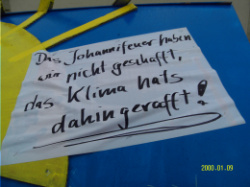 Das Johannifeuer haben
wir nicht geschafft,
das Klima hats
dahingerafft!
2000.01.09